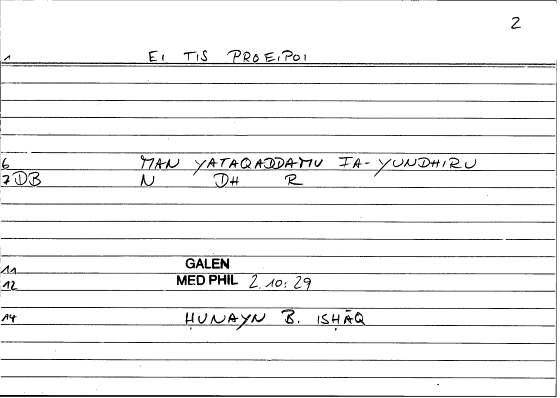 2
1 EI TIS PROEIPOI
6 MAN YATAQADDAMU FA-YUNDHIRU
7 DB N DH R
11 GALEN
12 MED PHIL 2.10:29
14 ḤUNAYN B. ISḤĀQ